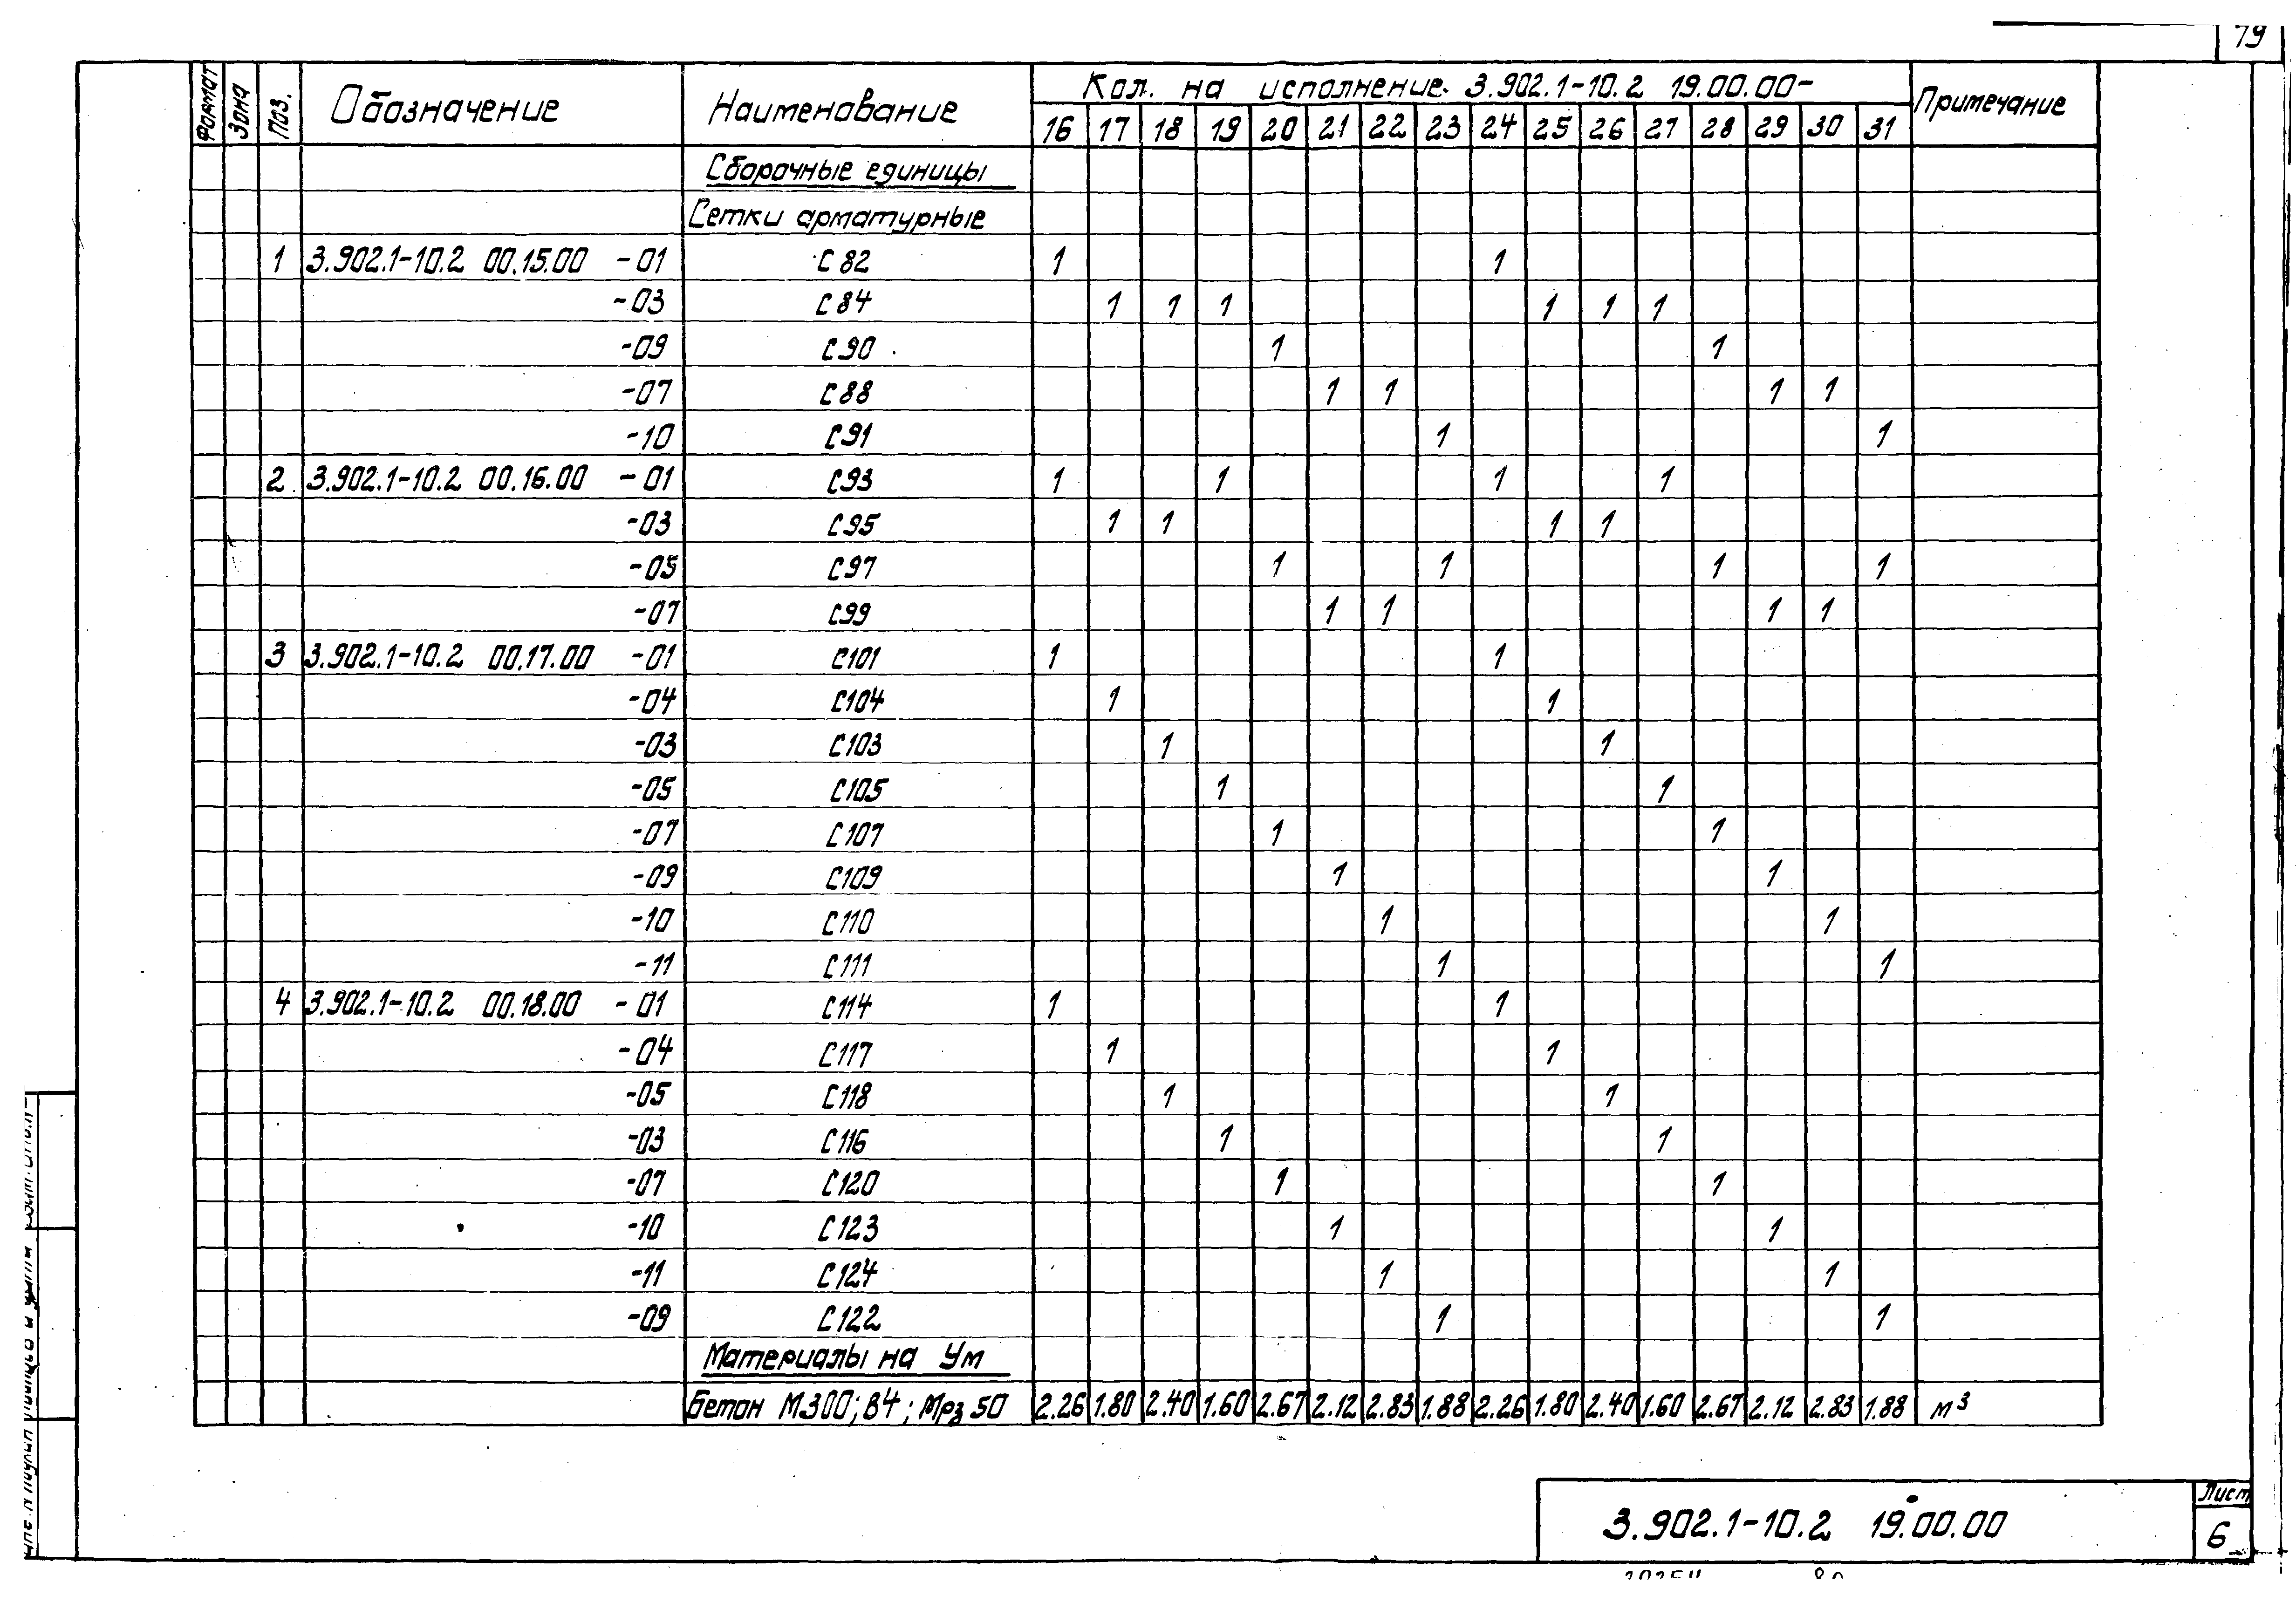 79
Формат Зона Поз. Обозначение Наименование Кол. на исполнение 3.902.1-10.2 19.00.00- Примечание
16 17 18 19 20 21 22 23 24 25 26 27 28 29 30 31
Сборочные единицы
Сетки арматурные
1 3.902.1-10.2 00.15.00 -01 С82 1 1
-03 С84 1 1 1 1 1 1
-09 С90 1 1
-07 С88 1 1 1 1
-10 С91 1 1
2 3.902.1-10.2 00.16.00 -01 С93 1 1 1 1
-03 С95 1 1 1 1
-05 С97 1 1 1 1
-07 С99 1 1 1 1
3 3.902.1-10.2 00.17.00 -01 С101 1 1
-04 С104 1 1
-03 С103 1 1
-05 С105 1 1
-07 С107 1 1
-09 С109 1 1
-10 С110 1 1
-11 С111 1 1
4 3.902.1-10.2 00.18.00 -01 С114 1 1
-04 С117 1 1
-05 С118 1 1
-03 С116 1 1
-07 С120 1 1
-10 С123 1 1
-11 С124 1 1
-09 С122 1 1
Материалы на Ум
Бетон М300; В4; Мрз 50 2.26 1.80 2.40 1.60 2.67 2.12 2.83 1.88 2.26 1.80 2.40 1.60 2.67 2.12 2.83 1.88 м³
3.902.1-10.2 19.00.00
Лист
6